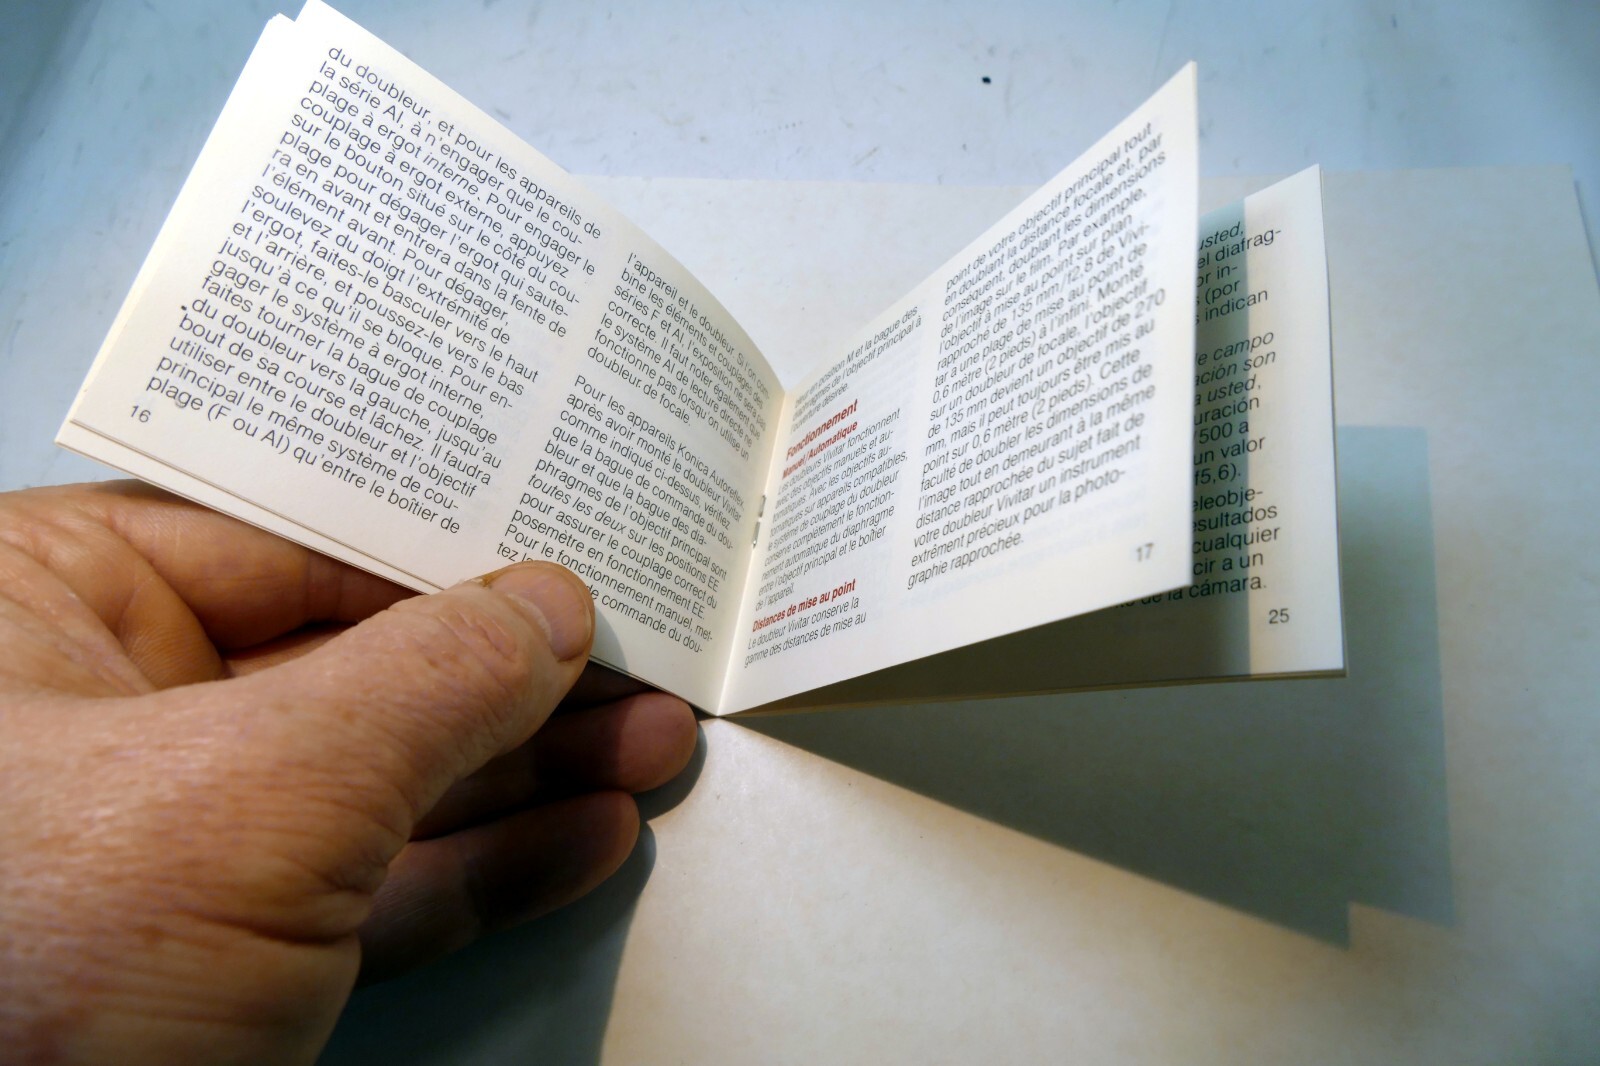 du doubleur, et pour les appareils de
la série AI, à n'engager que le cou-
plage à ergot interne. Pour engager le
couplage à ergot externe, appuyez
sur le bouton situé sur le côté du cou-
plage pour dégager l'ergot qui saute-
ra en avant et entrera dans la fente de
l'élément avant. Pour dégager,
soulevez du doigt l'extrémité de
l'ergot, faites-le basculer vers le haut
et l'arrière, et poussez-le vers le bas
jusqu'à ce qu'il se bloque. Pour en-
gager le système à ergot interne,
faites tourner la bague de couplage
du doubleur vers la gauche, jusqu'au
bout de sa course et lâchez. Il faudra
utiliser entre le doubleur et l'objectif
principal le même système de cou-
plage (F ou AI) qu'entre le boîtier de
16
l'appareil et le doubleur. Si l'on com-
bine les éléments et couplages des
séries F et AI, l'exposition ne sera pas
correcte. Il faut noter également que
le système AI de lecture directe ne
fonctionne pas lorsqu'on utilise un
doubleur de focale.
Pour les appareils Konica Autoreflex
après avoir monté le doubleur Vivitar
comme indiqué ci-dessus, vérifiez
que la bague de commande du dou-
bleur et que la bague des dia-
phragmes de l'objectif principal sont
toutes les deux sur les positions EE
pour assurer le couplage correct du
posemètre en fonctionnement EE.
Pour le fonctionnement manuel, met-
tez la de commande du dou-
bleur en position M et la bague des
diaphragmes de l'objectif principal à
l'ouverture désirée.
Fonctionnement
Manuel/Automatique
Les doubleurs Vivitar fonctionnent
avec des objectifs manuels et au-
tomatiques. Avec les objectifs au-
tomatiques sur appareils compatibles,
le système de couplage du doubleur
conserve complètement le fonction-
nement automatique du diaphragme
entre l'objectif principal et le boîtier
de l'appareil.
Distances de mise au point
Le doubleur Vivitar conserve la
gamme des distances de mise au
point de votre objectif principal tout
en doublant la distance focale et, par
conséquent, doublant les dimensions
de l'image sur le film. Par example,
l'objectif à mise au point sur plan
rapproché de 135 mm/f2,8 de Vivi-
tar a une plage de mise au point de
0,6 mètre (2 pieds) à l'infini. Monté
sur un doubleur de focale, l'objectif
de 135 mm devient un objectif de 270
mm, mais il peut toujours être mis au
point sur 0,6 mètre (2 pieds). Cette
faculté de doubler les dimensions de
l'image tout en demeurant à la même
distance rapprochée du sujet fait de
votre doubleur Vivitar un instrument
extrêment précieux pour la photo-
graphie rapprochée.
17
usted,
el diafrag-
or in-
(por
indican
de campo
ación son
a usted,
uración
/500 a
un valor
f5,6).
eleobje-
esultados
cualquier
cir a un
de la cámara.
25